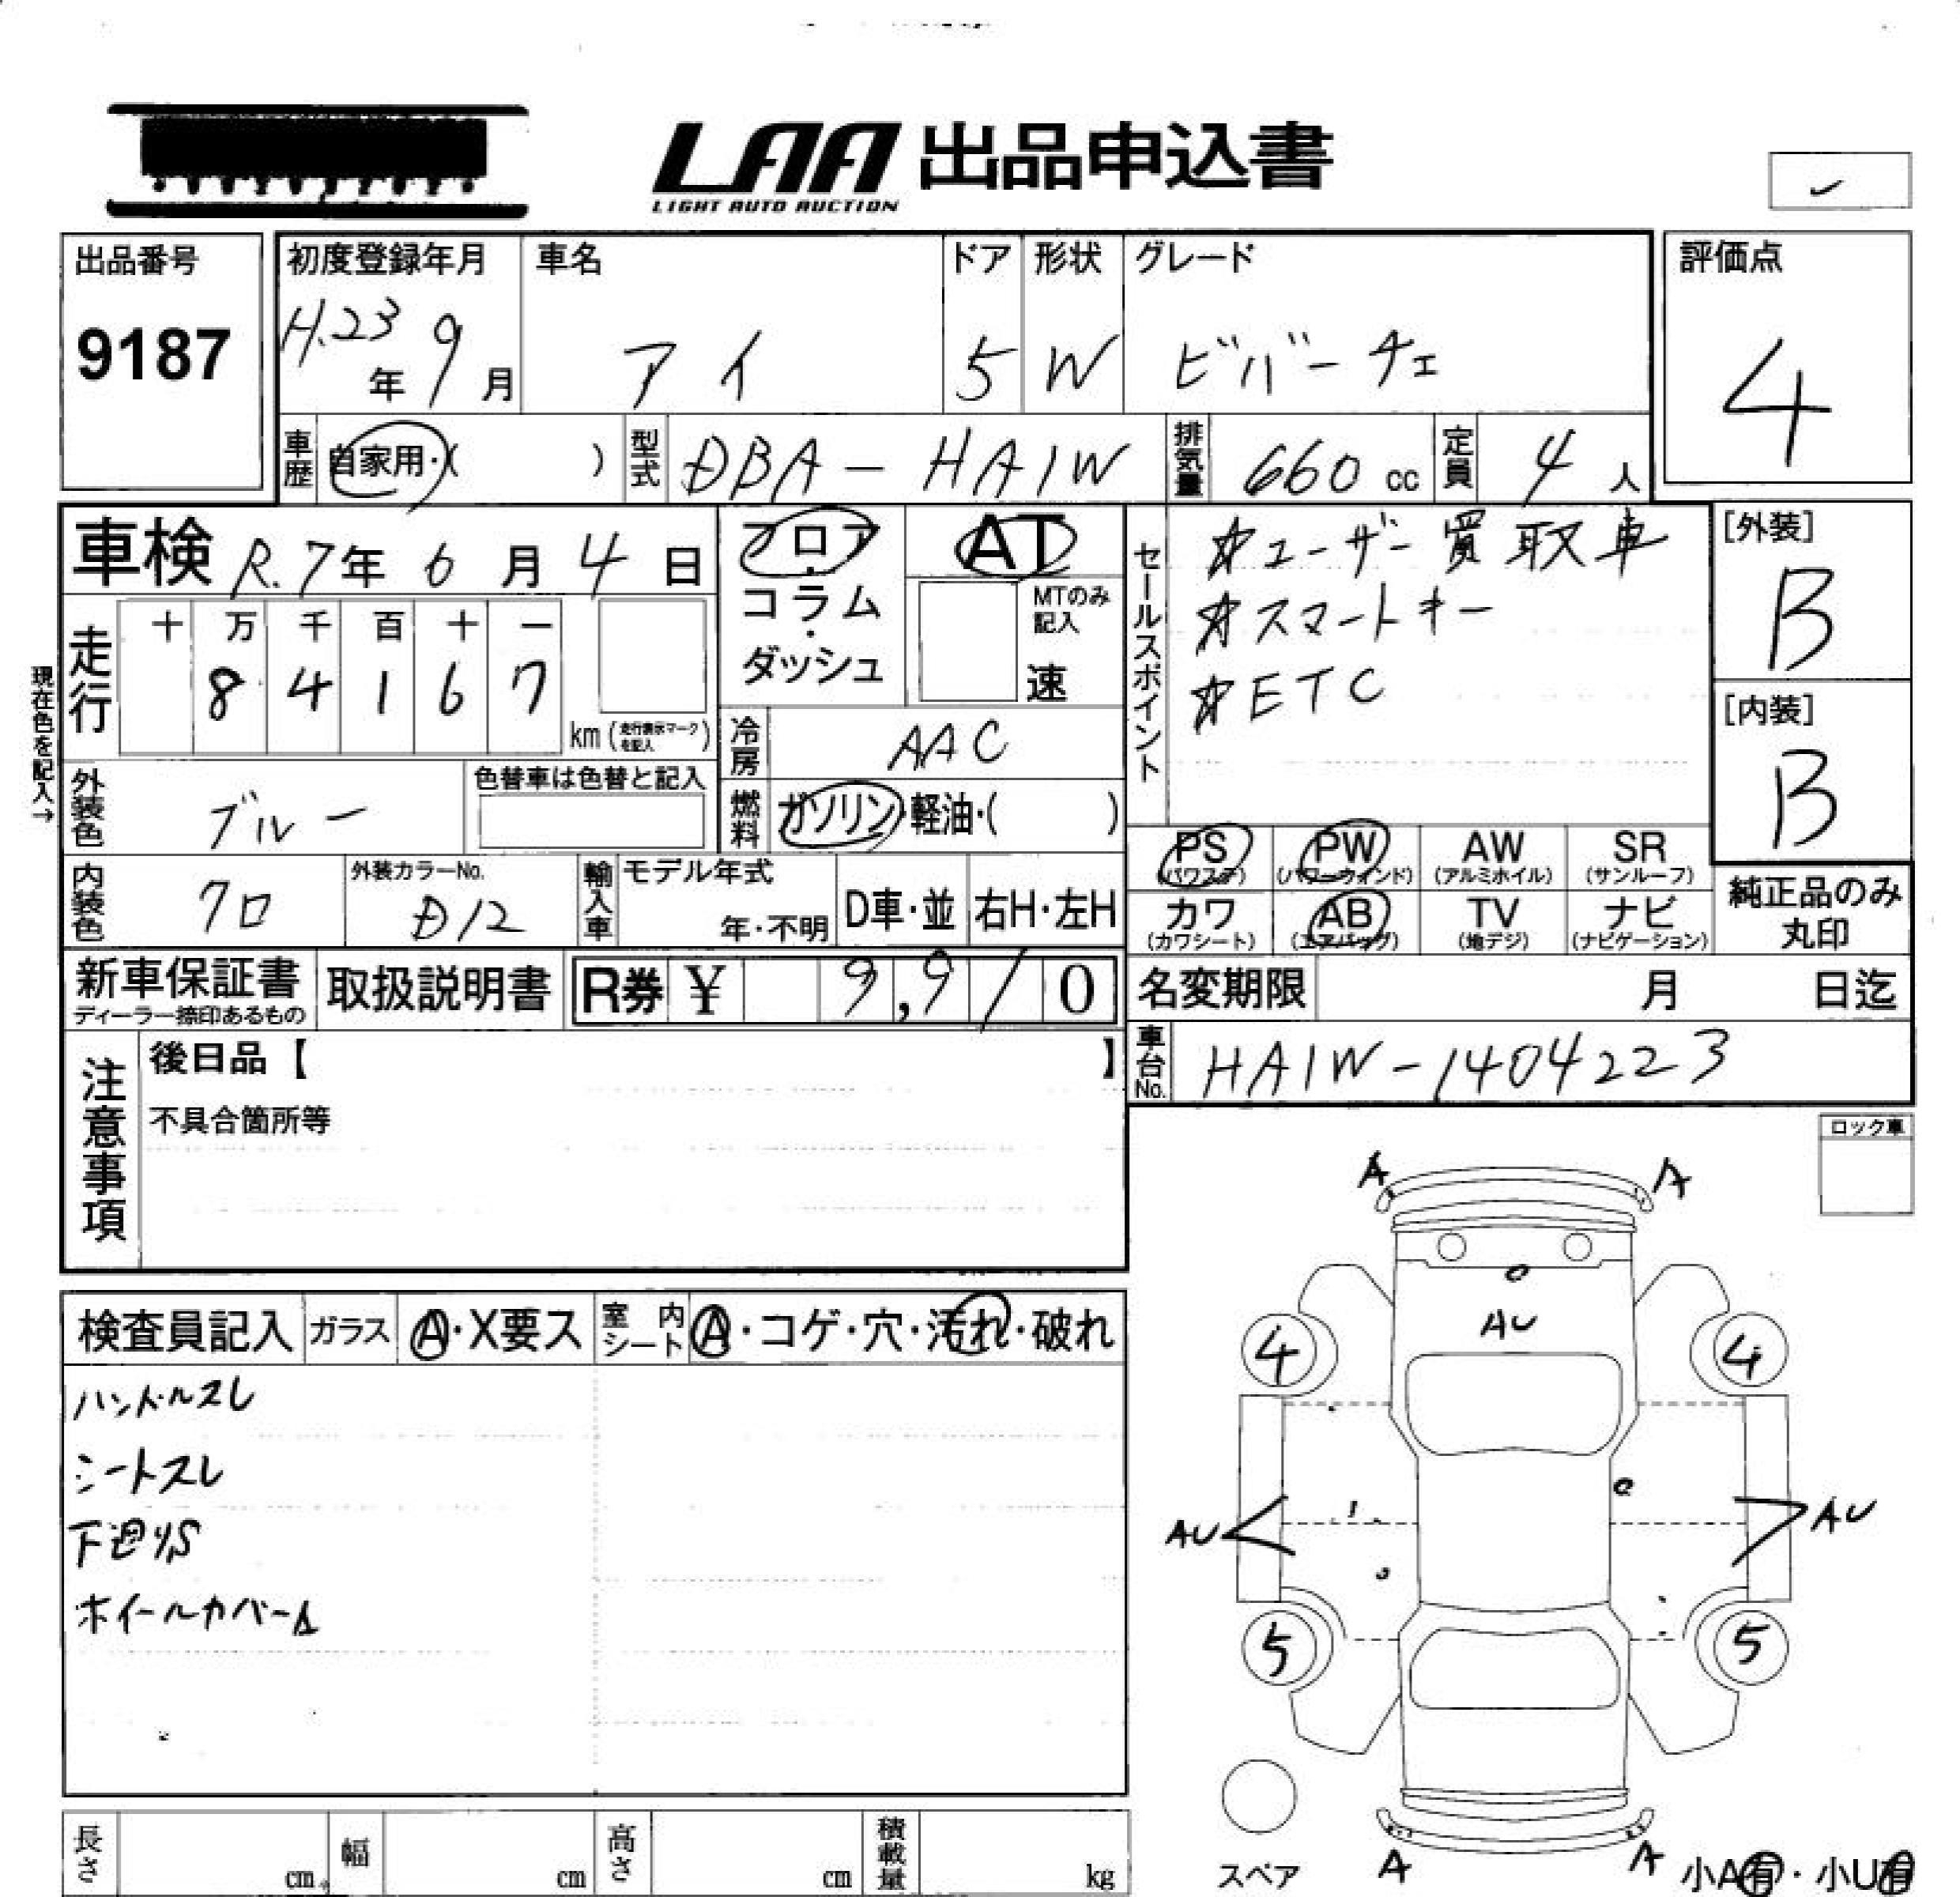 LAA 出品申込書
LIGHT AUTO AUCTION
出品番号
9187
初度登録年月
H.23年 9月
車名
アイ
ドア
5
形状
W
グレード
ビバーチェ
評価点
4
車歴
自家用・( )
型式
DBA-HA1W
排気量
660 cc
定員
4 人
車検 R.7年 6月 4日
フロア・コラム・ダッシュ
AT
MTのみ記入
速
セールスポイント
☆ユーザー買取車
☆スマートキー
☆ETC
[外装]
B
[内装]
B
現在色を記入→
走行
十 万 千 百 十 一
8 4 1 6 7
km (走行表示マークを記入)
冷房
AAC
燃料
ガソリン・軽油・( )
外装色
ブルー
色替車は色替と記入
内装色
クロ
外装カラーNo.
D12
輸入車
モデル年式
年・不明
D車・並
右H・左H
PS (パワステ)
PW (パワーウィンド)
AW (アルミホイル)
SR (サンルーフ)
カワ (カワシート)
AB (エアバッグ)
TV (地デジ)
ナビ (ナビゲーション)
純正品のみ丸印
新車保証書
ディーラー捺印あるもの
取扱説明書
R券 ¥ 9,910
名変期限 月 日迄
車台No.
HA1W-1404223
注意事項
後日品【 】
不具合箇所等
ロック車
検査員記入
ガラス
A・X要ス
室内シート
A・コゲ・穴・汚れ・破れ
ハンドルスレ
シートスレ
下廻りS
ホイールカバーA
A A
AU
4 4
AU AU
5 5
A A
スペア
小A有・小U有
長さ cm
幅 cm
高さ cm
積載量 kg